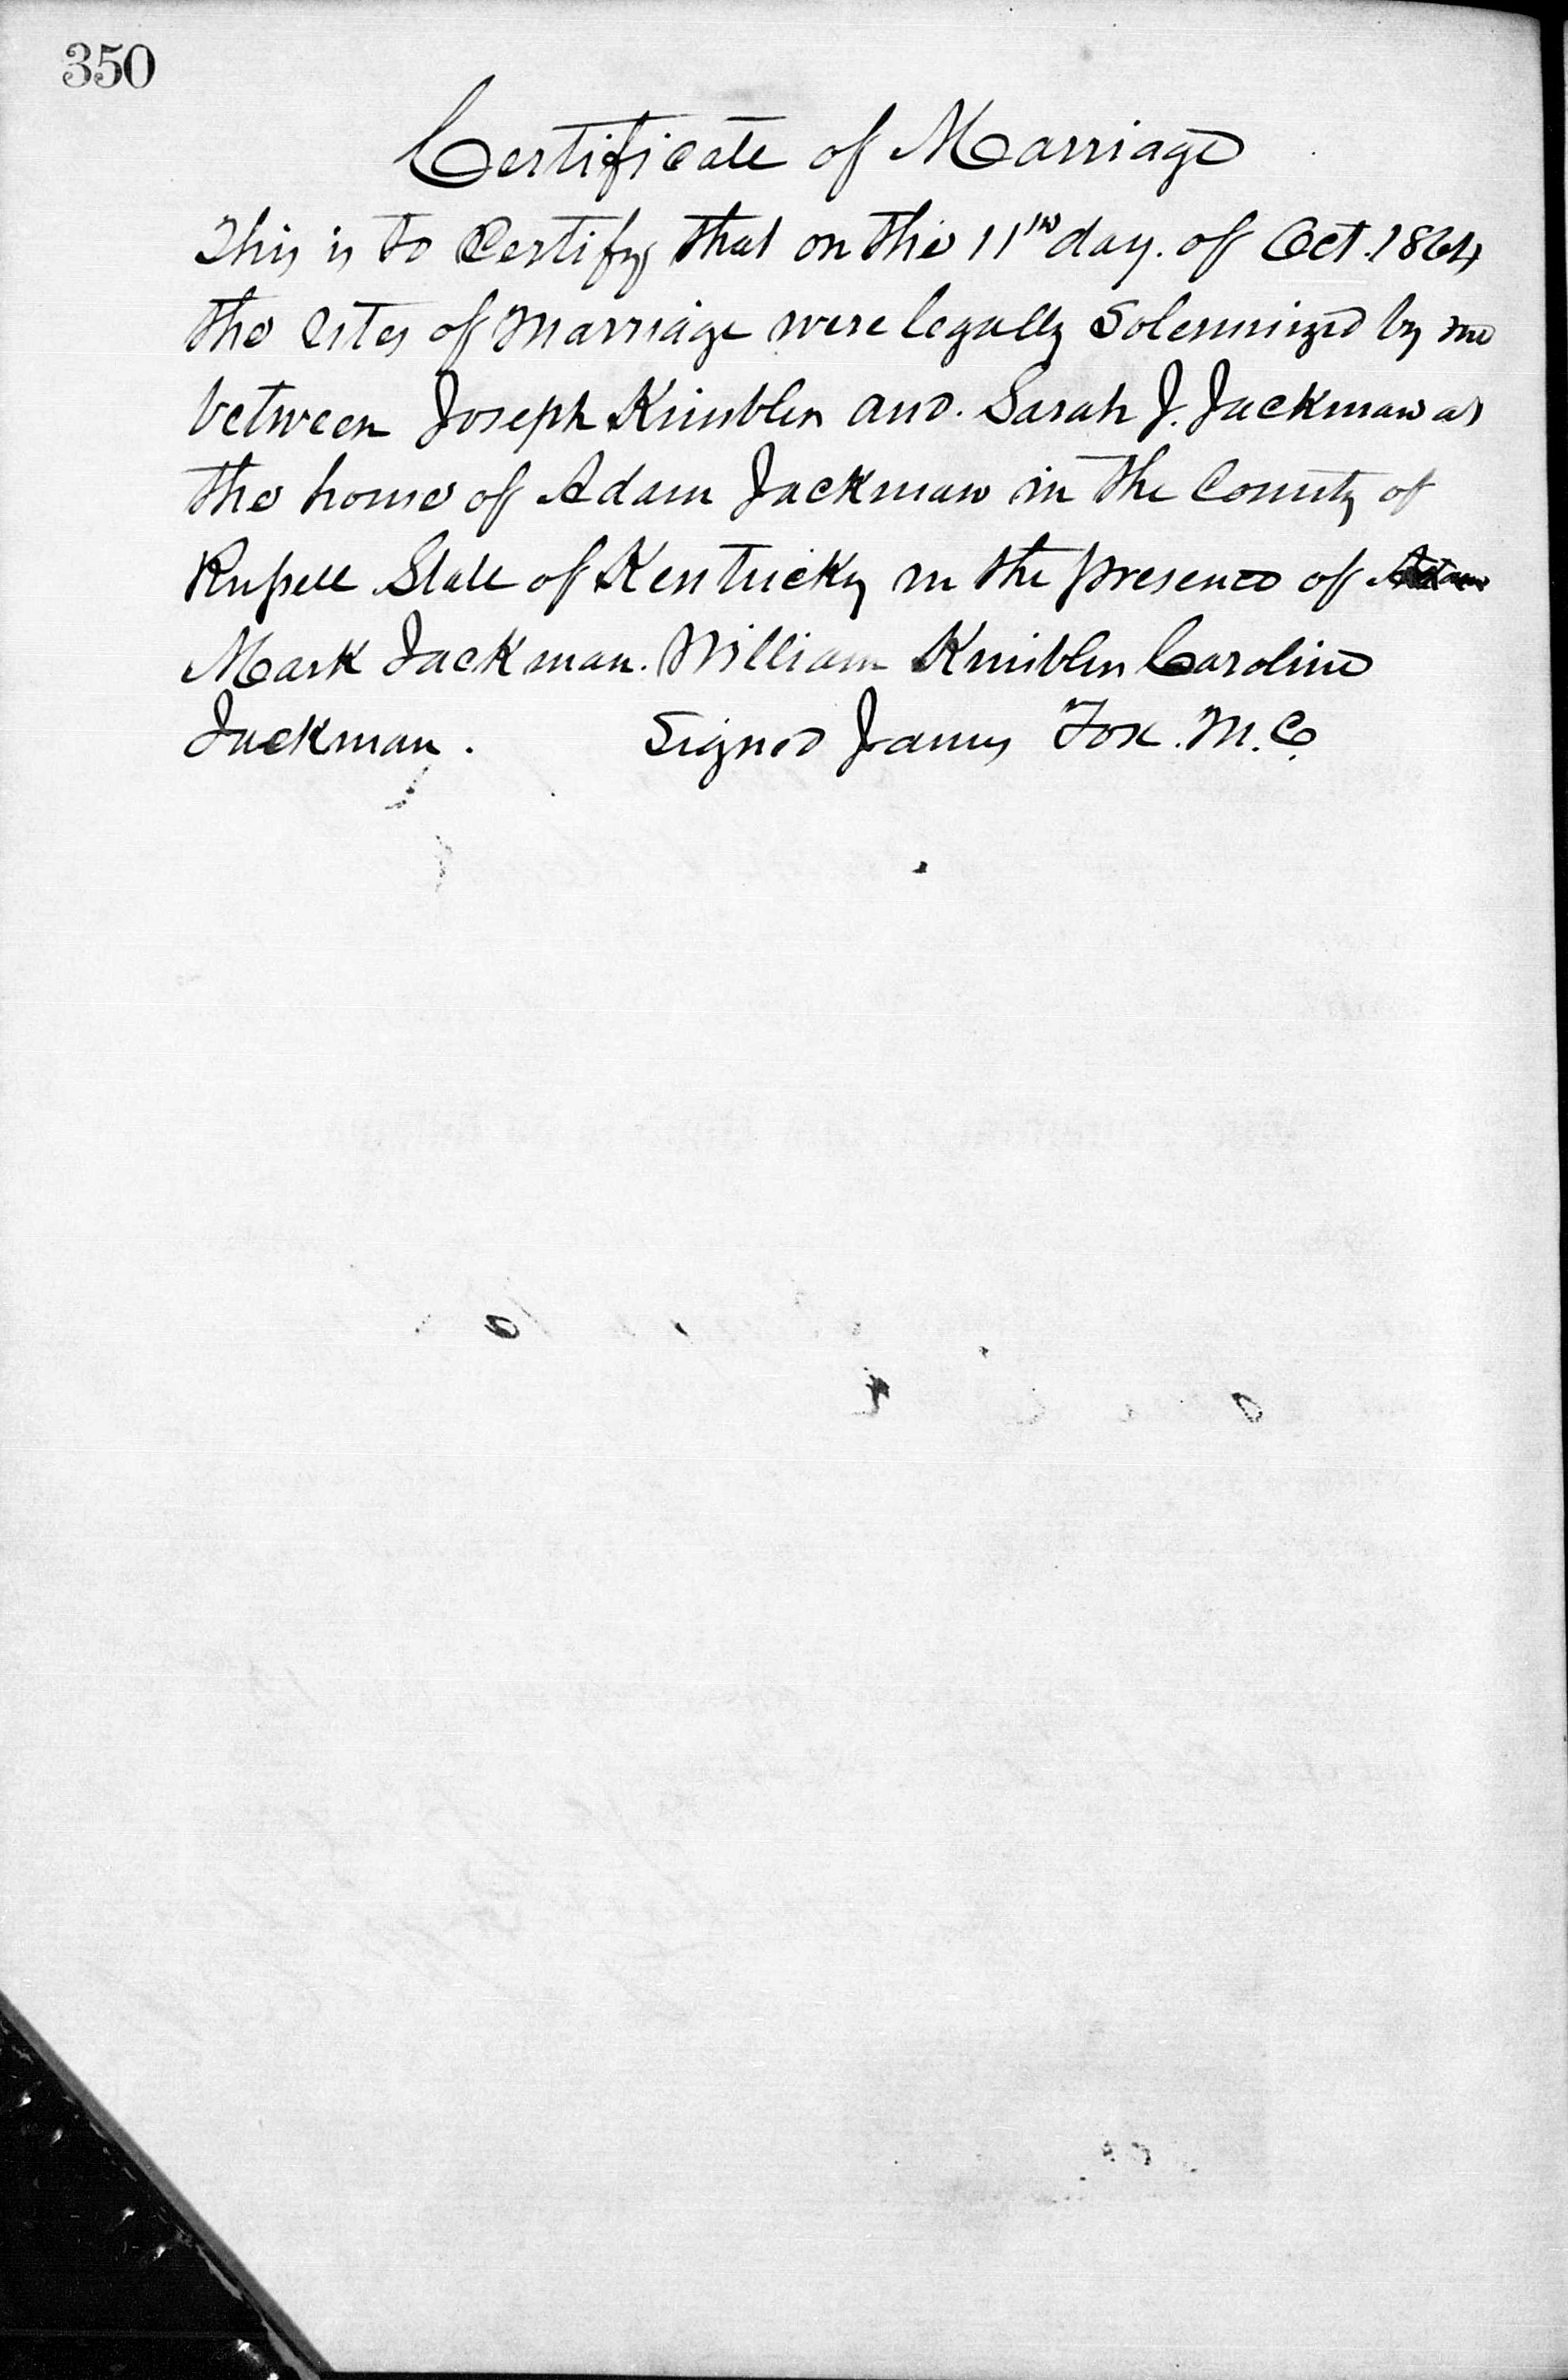 350
Certificate of Marriage
This is to Certify that on the 11th day. of Oct. 1864
the rites of Marriage were legally Solemnized by me
between Joseph Kimbler and. Sarah J. Jackman at
the house of Adam Jackman in the County of
Russell State of Kentucky in the presence of
Mark Jackman. William Kimbler Caroline
Jackman. Signed James Fox. M. C.